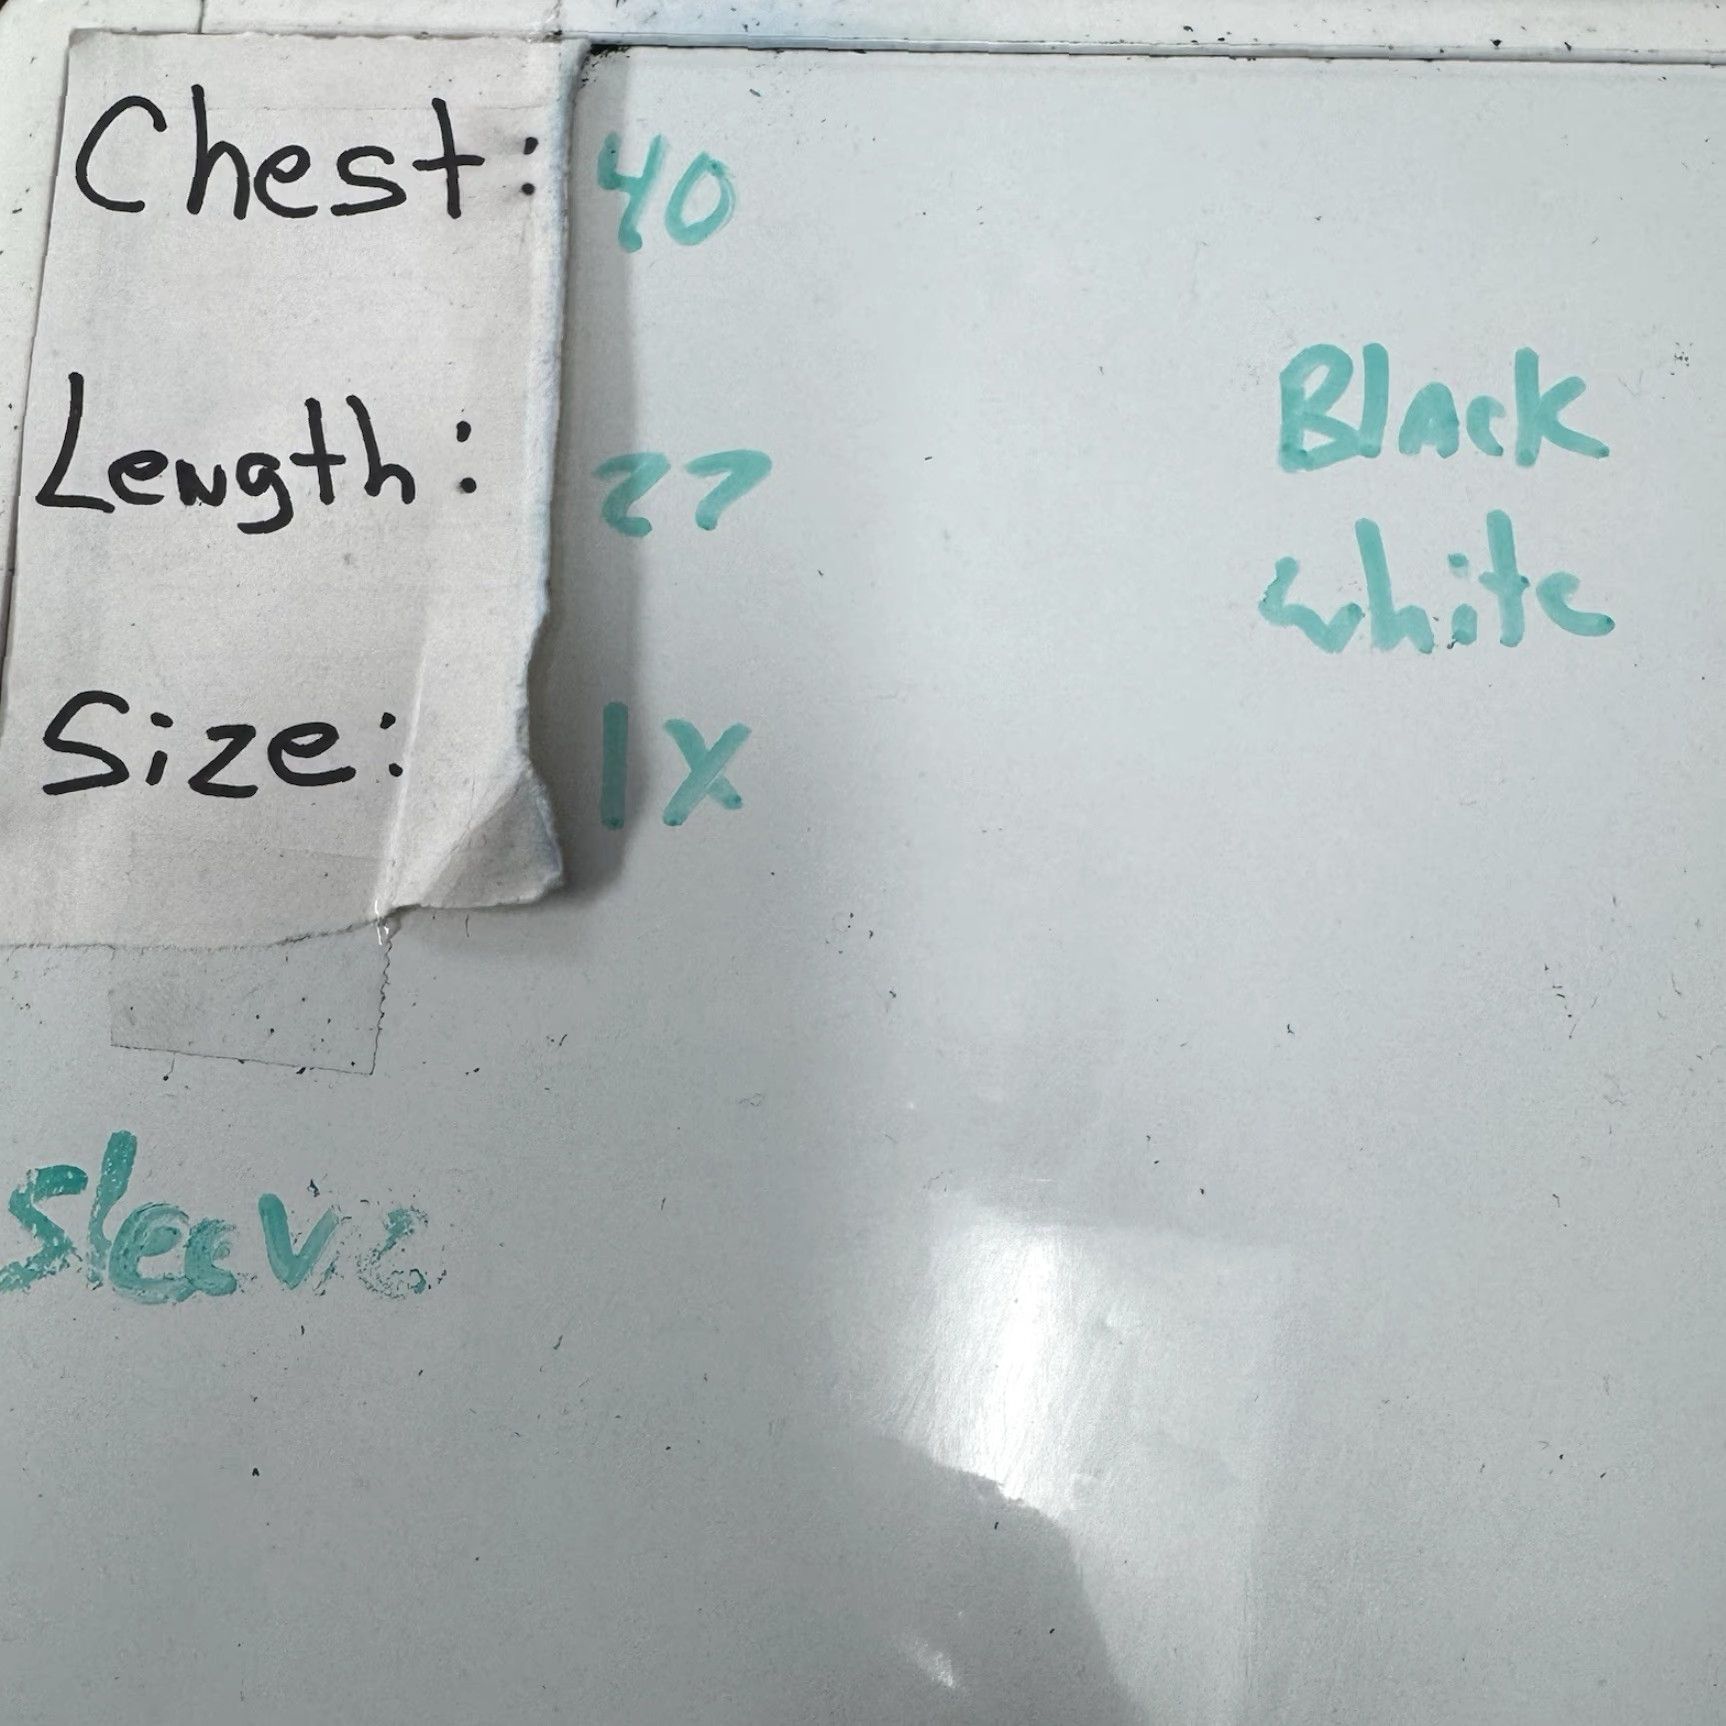 Chest: 40
Length: 27
Size: 1X
Black
white
Sleeve